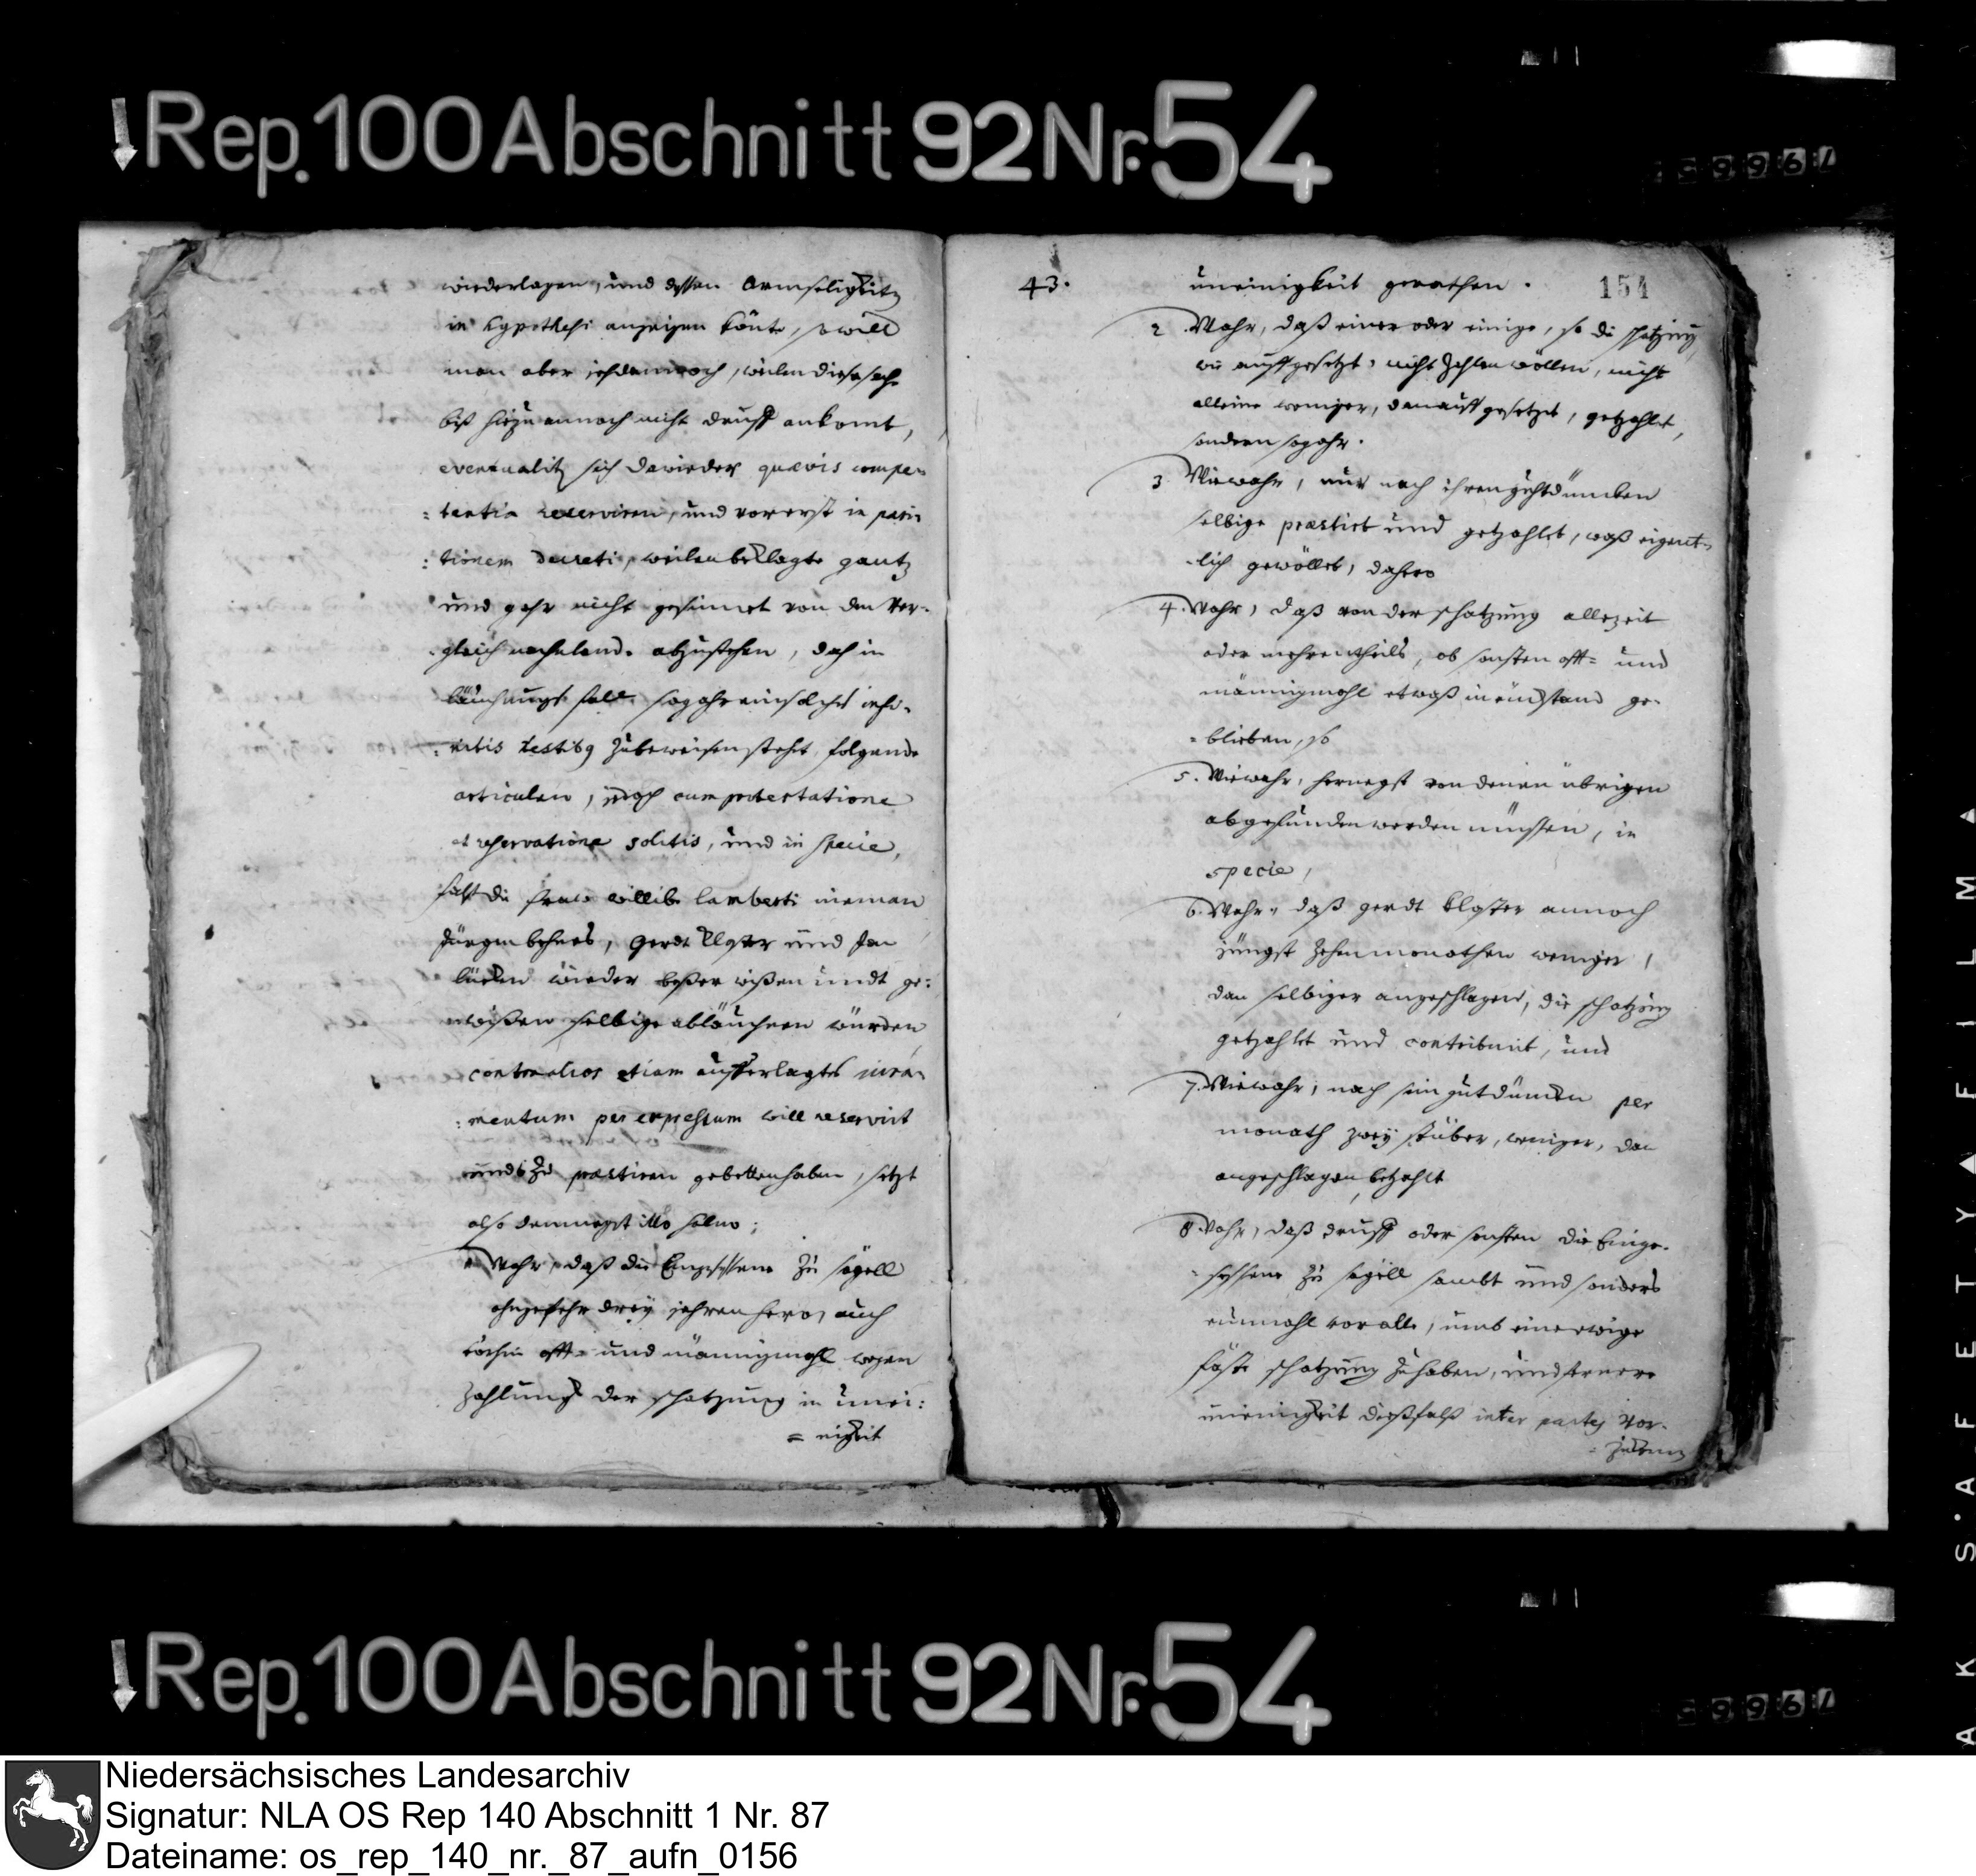 Rep. 100 Abschnitt 92 Nr. 54
wiederlagen, und dessen Armseligkeit
in hypothesi anzeigen könte, so will
man aber jehdennoch, weilen diese sach
biß hiezu annoch nicht drauff ankomt,
eventualit. sich dawieder quaevis compe-
:tentia reserviren, und vorerst in pari-
:tionem decreti, weilen beklagte gantz
und gahr nicht gesinnet von den Ver-
gleich abzustehen, dah in
läuchnungs fall sogahr ein solches
testibus zu beweisen steht, folgende
articulen, jedoch cum protestatione
et reservatione solitis, und in specie,
falß die Lamberti nieman
Jürgen behnes, Gerdt Kloster und Jan
lüken wieder beßer wißen undt ge:
wißen selbige abläuchnen würden
contra hos etiam aufferlagtes iura-
:mentum per expressum will reservirt
undt zu praestiren gebetten haben, setzt
also demnegst illo salvo;
1 Wahr, daß die Eingesessene zu sögell
ohngefehr drey jahren hero, auch
vorhin offt- und männigmahl wegen
Zahlung der schatzung in unei:
= nigkeit
43.
154
uneinigkeit gerathen.
2 Wahr, daß einer oder einige, so die schatzung
wie auffgesetzt, nicht Zahlen wöllen, nicht
alleine weniger, dan auffgesetzet, getzahlet,
sondern sogahr.
3 Wiewahr, nur nach ihren guhtdüncken
selbige praestirt und getzahlet, waß eigent-
-lich gewöllet, dahero
4. Wahr, daß von der schatzung allezeit
oder mehrentheils, ob sonsten offt= und
männigmahl etwaß in rückstand ge-
=blieben, so
5. Wiewahr, hernegst von denen übrigen
abgefunden werden müssen, in
specie,
6. Wahr, daß gerdt Kloster annoch
jüngst Zehen monathen weniger,
dan selbiger angeschlagen, die schatzung
getzahlet und contribuirt, und
7. Wiewahr, nach sein gutdüncken per
monath zwey stüber, weniger, dan
angeschlagen betzahlt
8 Wahr, daß drauff oder sonsten die Einge-
-sessene zu sögell sambt und sonders
einmahl vor alle, umb eine ewige
faste schatzung zu haben, und fernere
uneinigkeit deßfalß inter partes vor-
=zukommen
Rep. 100 Abschnitt 92 Nr. 54
AK SAFETY FILM
Niedersächsisches Landesarchiv
Signatur: NLA OS Rep 140 Abschnitt 1 Nr. 87
Dateiname: os_rep_140_nr._87_aufn_0156